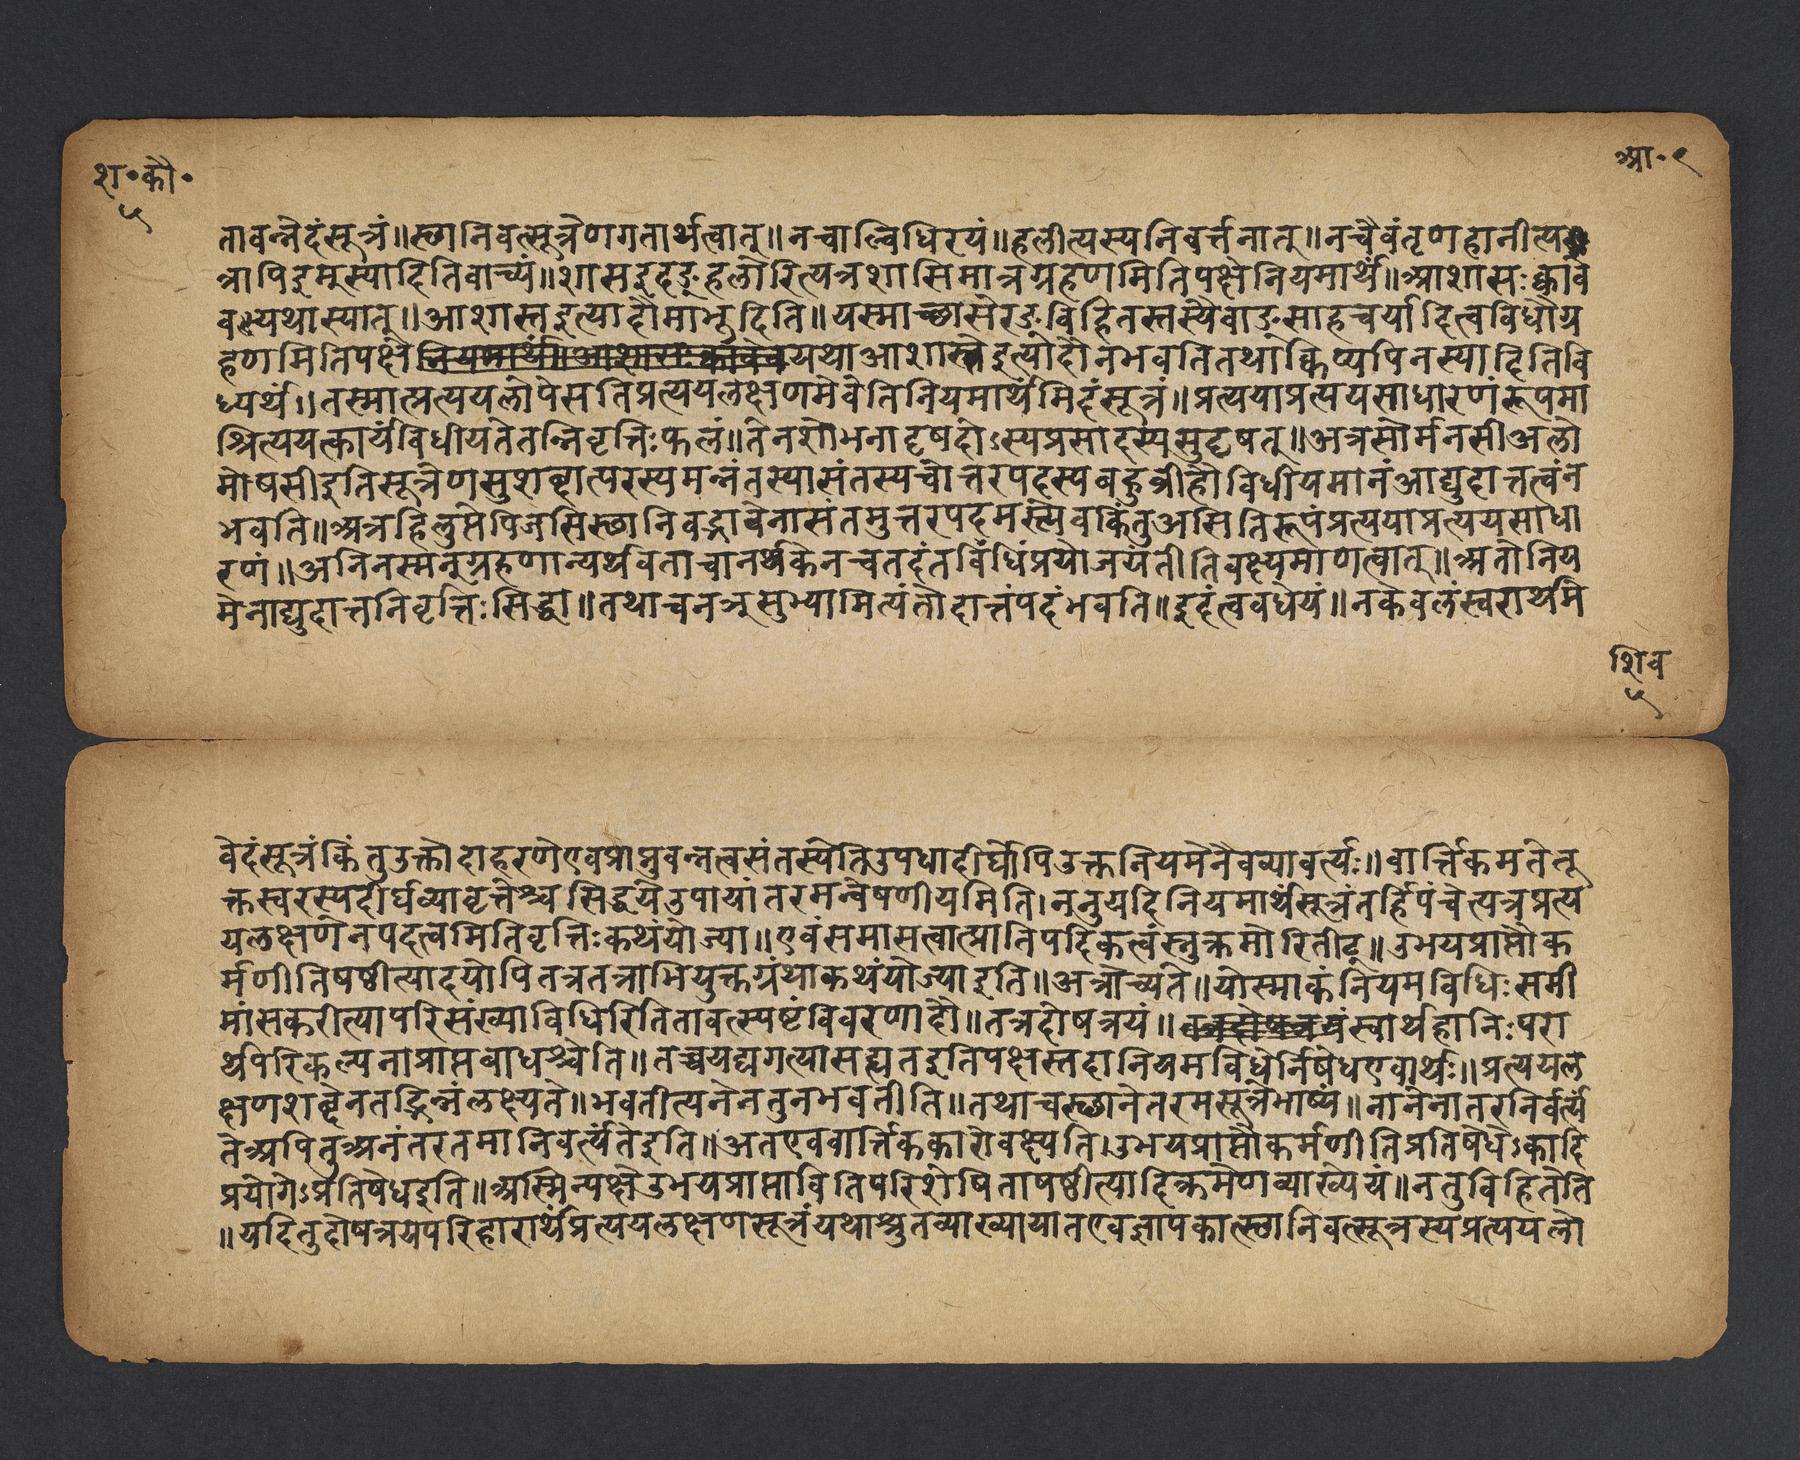 श॰कौ॰
५
आ॰९
तावन्नेदंसूत्रं॥स्थानिवत्सूत्रेणगतार्थत्वात्॥नचाल्विधिरयं॥हलीत्यस्यनिवर्त्तनात्॥नचैवंतृणहानीत्य
त्रापिइम्स्यादितिवाच्यं॥शासइदङ्हलोरित्यत्रशासिमात्रग्रहणमितिपक्षेनियमार्थं॥आशासःक्वावे
वयथास्यात्॥आशास्तइत्यादौमाभूदिति॥यस्माच्छासेरङ्विहितस्तस्यैवाङ्साहचर्यादित्वविधौग्र
हणमितिपक्षेयथाआशास्तइत्यादौनभवतितथाक्विप्यपिनस्यादितिवि
ध्यर्थं॥तस्मात्प्रत्ययलोपेसतिप्रत्ययलक्षणमेवेतिनियमार्थमिदंसूत्रं॥प्रत्ययाप्रत्ययसाधारणंरूपमा
श्रित्ययत्कार्यंविधीयतेतन्निवृत्तिःफलं॥तेनशोभनादृषदोऽस्यप्रसादस्यसुदृषत्॥अत्रसोर्मनसीअलो
मोषसीइतिसूत्रेणसुशब्दात्परस्यमन्नंतस्यासंतस्यचोत्तरपदस्यबहुव्रीहौविधीयमानंआद्युदात्तत्वंन
भवति॥अत्रहिलुप्तेपिजसिस्थानिवद्भावेनासंतमुत्तरपदमस्त्येवकिंतुअसितिरूपंप्रत्ययाप्रत्ययसाधा
रणं॥अनिनस्मन्ग्रहणान्यर्थवताचानर्थकेनचतदंतविधिंप्रयोजयंतीतिवक्ष्यमाणत्वात्॥अतोनिय
मेनाद्युदात्तनिवृत्तिःसिद्धा॥तथाचनञ्सुभ्यामित्यंतोदात्तंपदंभवति॥इदंत्ववधेयं॥नकेवलंस्वरार्थमि
शिव
५
वेदंसूत्रंकिंतुउक्तोदाहरणेएवप्राप्नुवन्नत्वसंतस्येतिउपधादीर्घोपिउक्तनियमेनैवव्यावर्त्यः॥वार्त्तिकमतेतू
क्तस्वरस्यदीर्घव्यावृत्तेश्चसिद्धयेउपायांतरमन्वेषणीयमिति।ननुयदिनियमार्थंसूत्रंतर्हिपंचेत्यत्रप्रत्य
यलक्षणेनपदत्वमितिवृत्तिःकथंयोज्या॥एवंसमासत्वात्प्रातिपदिकत्वंस्नुक्रमोरितीट्॥उभयप्राप्तौक
र्मणीतिषष्ठीत्यादयोपितत्रतत्राभियुक्तग्रंथाकथंयोज्याइति॥अत्रोच्यते॥योस्माकंनियमविधिःसमी
मांसकरीत्यापरिसंख्याविधिरितितावत्स्पष्टंविवरणादौ॥तत्रदोषत्रयं॥स्वार्थहानिःपरा
र्थपरिकल्पनाप्राप्तबाधश्चेति॥तच्चयद्यगत्यासह्यतइतिपक्षस्तदानियमविधेर्निषेधएवार्थः॥प्रत्ययल
क्षणशब्देनतद्भिन्नंलक्ष्यते॥भवतीत्यनेनतुनभवतीति॥तथाचस्थानेंतरमसूत्रेभाष्यं॥नानेनांतरनिर्वर्त्यं
तेअपितुअनंतरतमानिवर्त्यंतेइति॥अतएववार्त्तिककारोवक्ष्यति।उभयप्राप्तौकर्मणीतिप्रतिषेधेऽकादि
प्रयोगेऽप्रतिषेधइति॥अस्मिन्पक्षेउभयप्राप्तावितिपरिशेषिताषष्ठीत्यादिक्रमेणव्याख्येयं॥नतुविहितेति
॥यदितुदोषत्रयपरिहारार्थंप्रत्ययलक्षणसूत्रंयथाश्रुतव्याख्यायातएवज्ञापकात्स्थानिवत्सूत्रस्यप्रत्ययलो